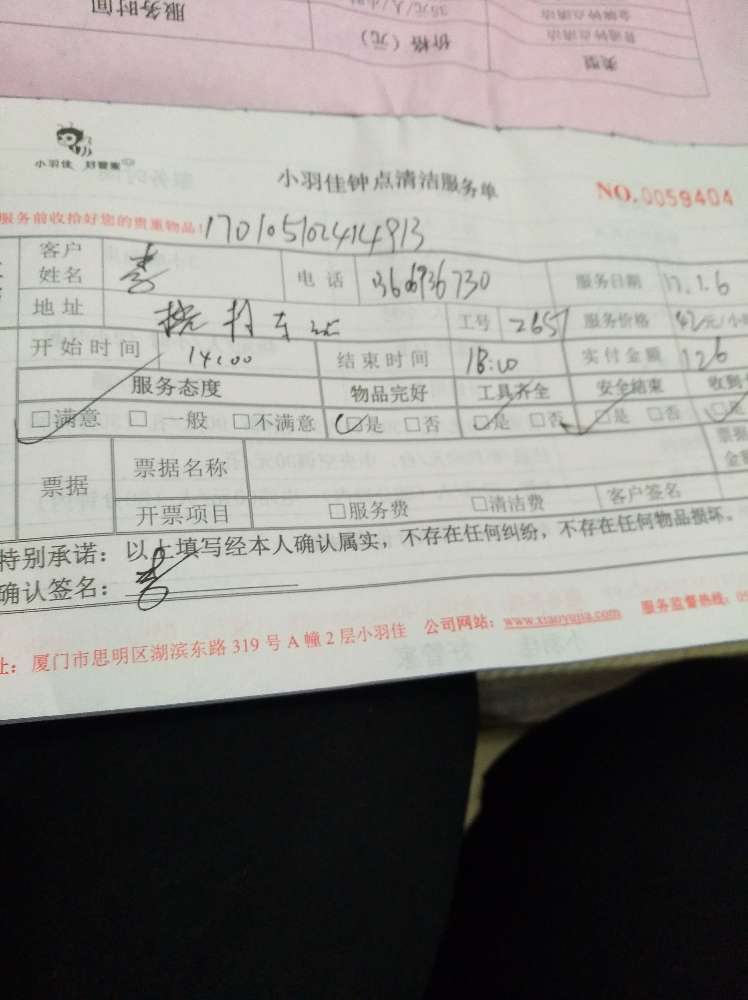 服务时间
35元/人/小时
金牌钟点清洁
价格（元）
普通钟点清洁
类型
小羽佳 好管家
小羽佳钟点清洁服务单
NO.0059404
服务前收拾好您的贵重物品!
170105102414913
客户姓名 李 电话 服务日期 17.1.6
地址 工号 2657 服务价格 42元/小时
开始时间 14:00 结束时间 18:00 实付金额 126
服务态度 物品完好 工具齐全 安全结束 收到
□满意 □一般 □不满意 □是 □否 □是 □否 □是 □否 □是
票据 票据名称 票据金额
开票项目 □服务费 □清洁费 客户签名
特别承诺：以上填写经本人确认属实，不存在任何纠纷，不存在任何物品损坏。
确认签名： 李
址：厦门市思明区湖滨东路319号A幢2层小羽佳 公司网站：www.xiaoyujia.com 服务监督热线：